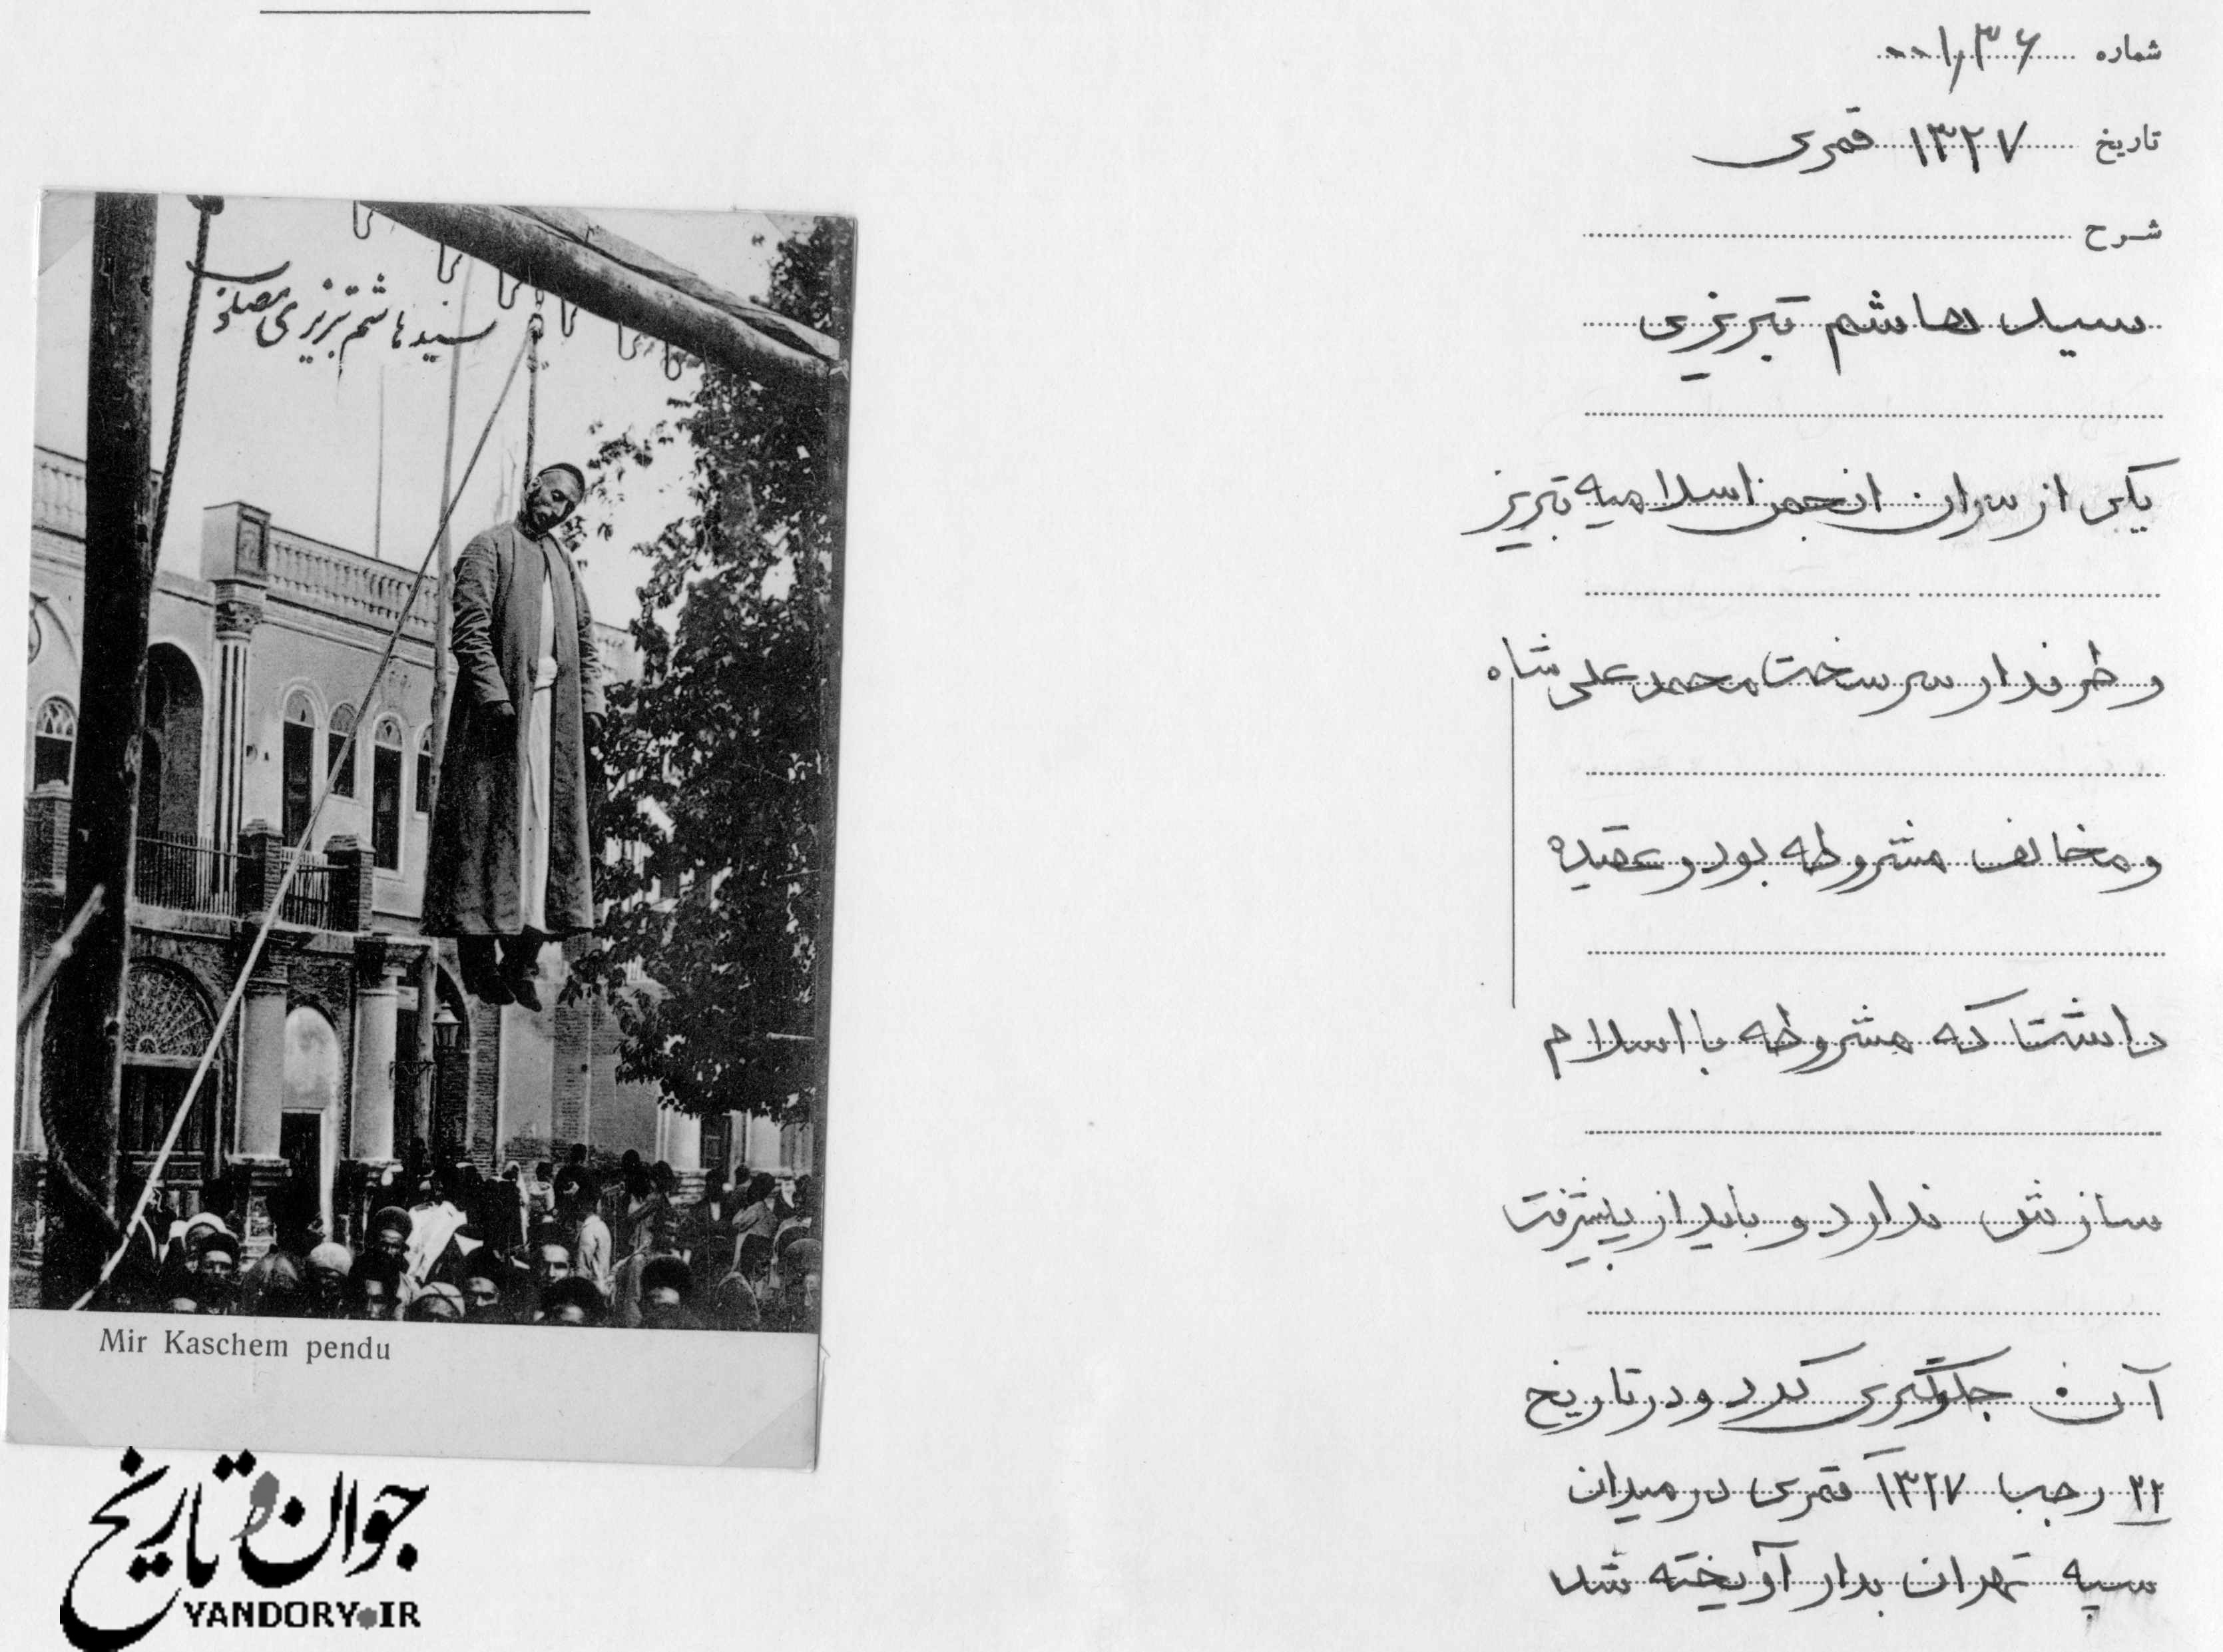 شماره ۱۳۶
تاریخ ۱۳۲۷ قمری
شرح
سید هاشم تبریزی
یکی از سران انجمن اسلامیه تبریز
و طرفدار سرسخت محمدعلی شاه
و مخالف مشروطه بود و عقیده
داشت که مشروطه با اسلام
سازش ندارد و باید از پیشرفت
آن جلوگیری کرد و در تاریخ
۲۲ رجب ۱۳۲۷ قمری در میدان
سپه تهران بدار آویخته شد
سید هاشم تبریزی
Mir Kaschem pendu
جوان و تاریخ
YANDORY.IR